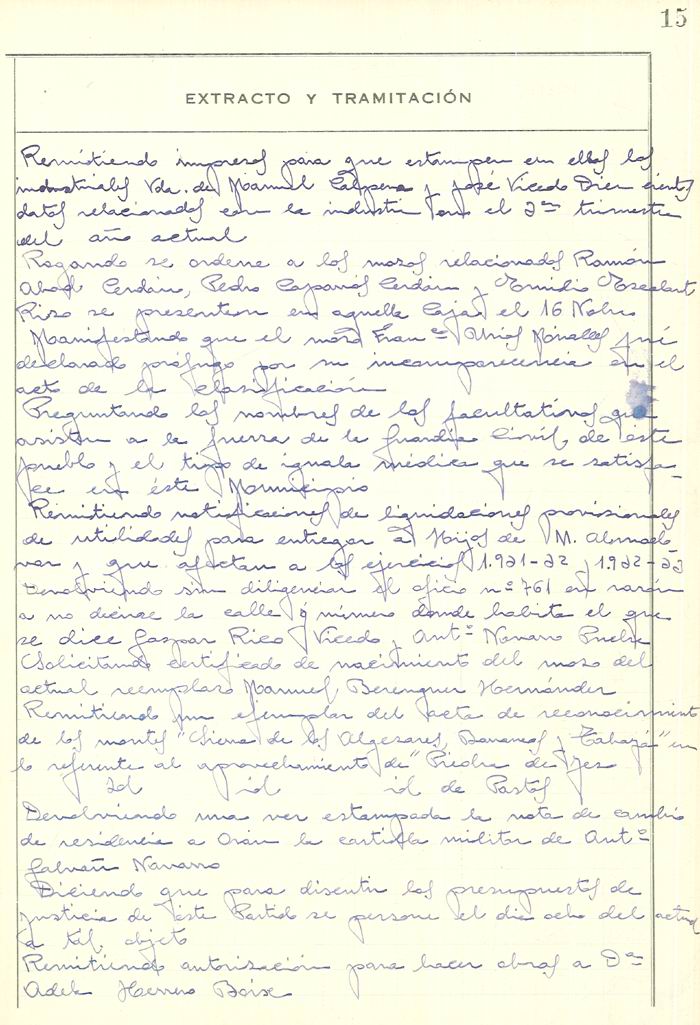 15
EXTRACTO Y TRAMITACIÓN
Remitiendo impresos para que estampen en ellos los
industriales Vda. de Manuel Calpena y José Vicedo Diez ciertos
datos relacionados con la industria en el 2º trimestre
del año actual
Rogando se ordene a los mozos relacionados Ramón
Abad Cerdán, Pedro Cerdán y Emidio
Rizo se presenten en aquella Caja el 16 Nobre
Manifestando que el mozo Franco fué
declarado prófugo por su incomparecencia en el
acto de la clasificación
Preguntando los nombres de los facultativos que
asisten a la fuerza de la Guardia Civil de éste
pueblo y el tipo de iguala médica que se satisfa-
ce en éste Municipio
Remitiendo notificaciones de liquidaciones provisionales
de utilidades para entregar a Hijos de M. Almodo-
var y que afectan a los ejercicios 1.921-22 y 1922-23
Devolviendo sin diligenciar el oficio nº 761 en razón
a no decirse la calle y número donde habita el que
se dice Gaspar Rico Vicedo y Antº Navarro
Solicitando certificado de nacimiento del mozo del
actual reemplazo Manuel Berenguer Hernández
Remitiendo un ejemplar del acta de reconocimiento
de los montes "Sierra de los Algezares, y " en
lo referente al aprovechamiento de "Piedra de Yeso
Id id id de Pastos
Devolviendo una vez estampada la nota de cambio
de residencia a Orán la cartilla militar de Antº
Galvañ Navarro
Diciendo que para discutir los presupuestos de
justicia de éste Partido se persone el dia ocho del actual
a tal objeto
Remitiendo autorización para hacer obras a Dª
Adela Herrero